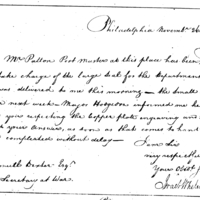 Philadelphia Novembr 26
Mr. Patton Post Master at this place has been
take charge of the large Seal for the Department
was delivered to me this morning — the Small
next week — Major Hodgson informed me he
you respecting the Copper plate engraving and
your answer, as soon as that comes to hand
completed without delay —
I am Sir
very respectf
Your Obt
Israel Whelen
Samuel Dexter Esqr
Secretary at War